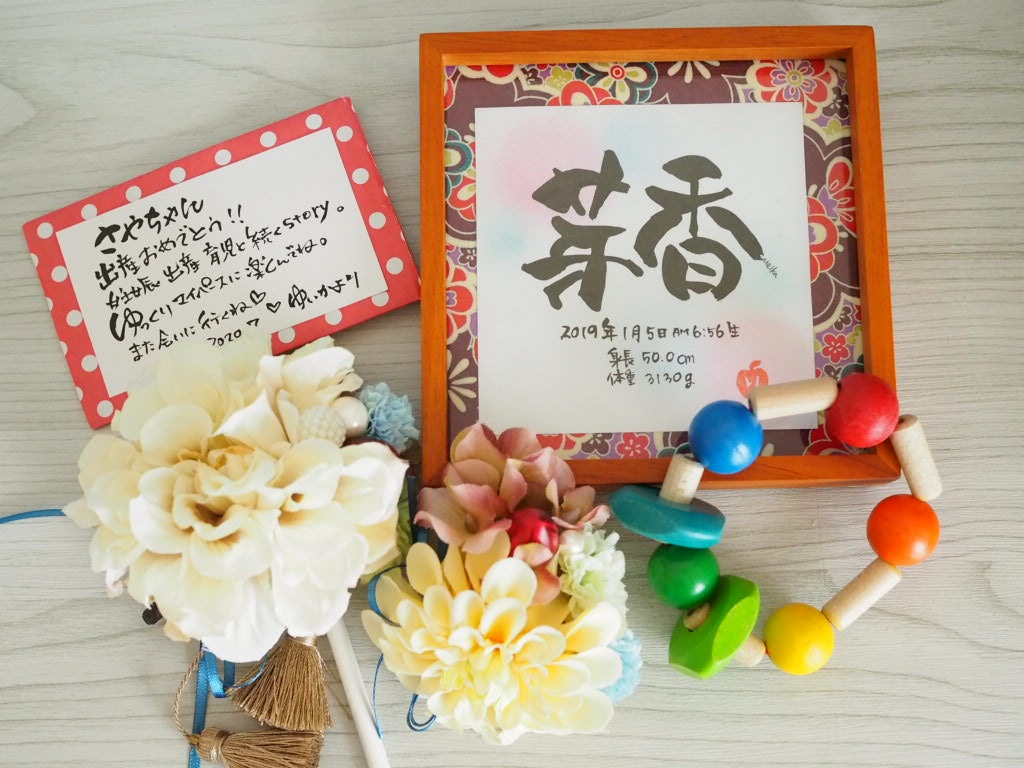 さやちゃん
出産おめでとう!!
妊娠 出産 育児と続くstory。
ゆっくりマイペースに楽しんでね。
また会いに行くね♡ ♡ ゆいかより
2020 7
芽香
2019年1月5日AM6:56生
身長 50.0cm
体重 3130g